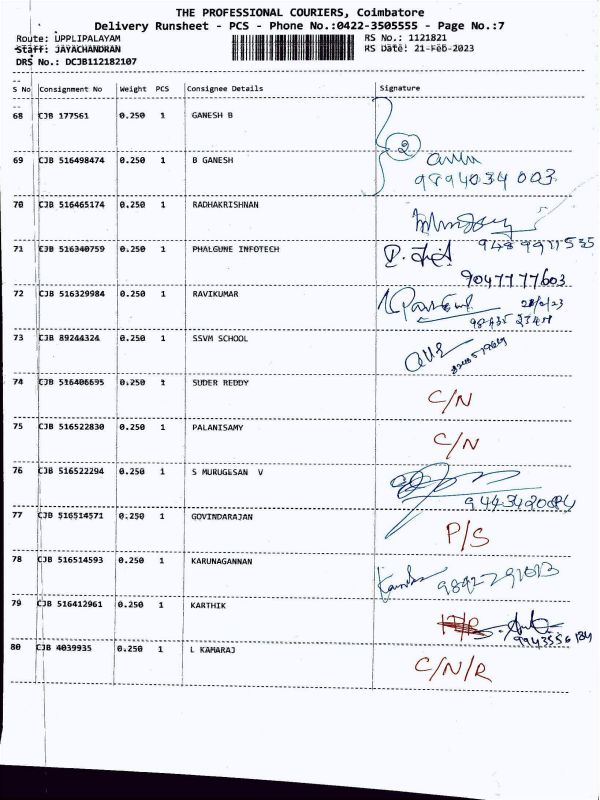 THE PROFESSIONAL COURIERS, Coimbatore
Delivery Runsheet - PCS - Phone No.:0422-3505555 - Page No.:7
Route: UPPLIPALAYAM RS No.: 1121821
Staff: JAYACHANDRAN RS Date: 21-Feb-2023
DRS No.: DCJB112182107
S No Consignment No Weight PCS Consignee Details Signature
68 CJB 177561 0.250 1 GANESH B
2
69 CJB 516498474 0.250 1 B GANESH
9894034003
70 CJB 516465174 0.250 1 RADHAKRISHNAN
71 CJB 516340759 0.250 1 PHALGUNE INFOTECH
9047777603
72 CJB 516329984 0.250 1 RAVIKUMAR
73 CJB 89244324 0.250 1 SSVM SCHOOL
74 CJB 516406695 0.250 1 SUDER REDDY C/N
75 CJB 516522830 0.250 1 PALANISAMY C/N
76 CJB 516522294 0.250 1 S MURUGESAN V
9443420084
77 CJB 516514571 0.250 1 GOVINDARAJAN P/S
78 CJB 516514593 0.250 1 KARUNAGANNAN
79 CJB 516412961 0.250 1 KARTHIK
80 CJB 4039935 0.250 1 L KAMARAJ C/N/R